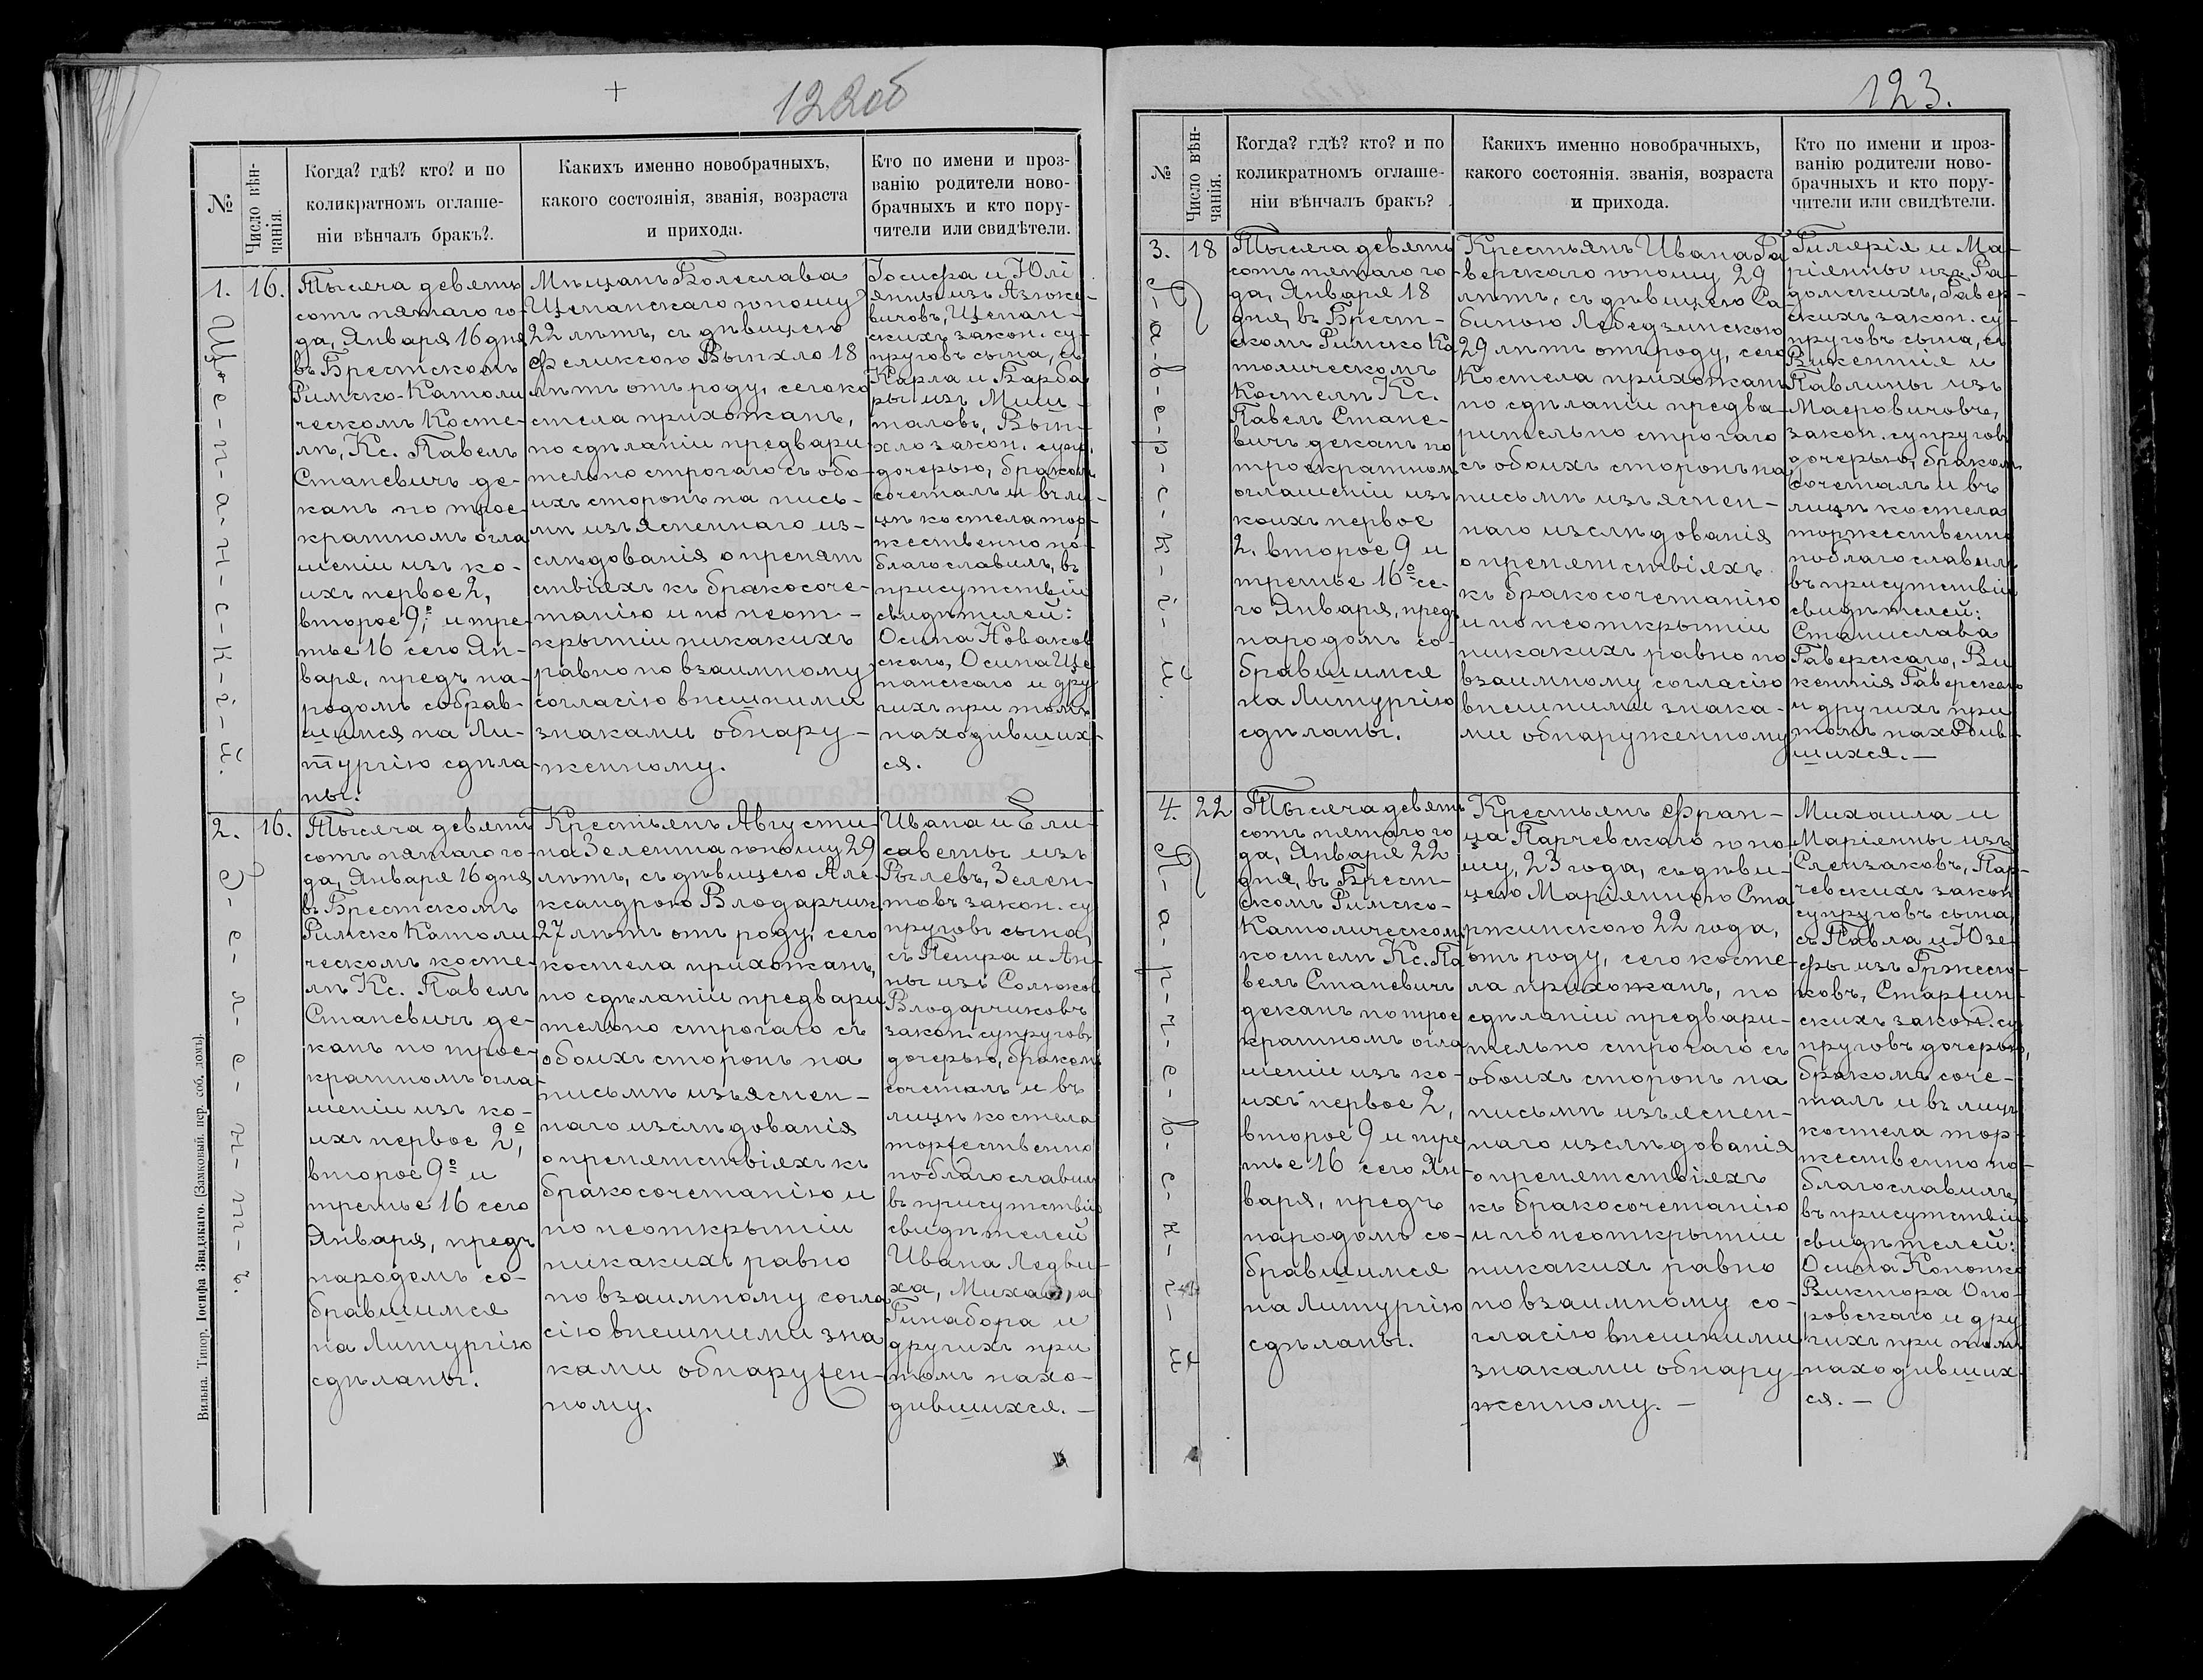 122об
№
Число вѣн-
чанія.
Когда? гдѣ? кто? и по
коликратномъ оглаше-
ніи вѣнчалъ бракъ?.
Какихъ именно новобрачныхъ,
какого состоянія, званія, возраста
и прихода.
Кто по имени и проз-
ванію родители ново-
брачныхъ и кто пору-
чители или свидѣтели.
1.
Щ-е-п-а-н-с-к-і-й.
16.
Тысяча девять
сотъ пятаго го-
да, Января 16 дня
въ Брестскомъ
Римско-Католи
ческомъ Косте-
лѣ, Кс. Павелъ
Станевичъ де-
канъ по трое-
кратномъ огла
шеніи изъ ко-
ихъ первое 2,
второе 9,º и тре-
тье 16 сего Ян-
варя, предъ на-
родомъ собрав-
шимся на Ли-
тургію сдѣла-
ны.
Мѣщанъ Болеслава
Щепанскаго юношу
22 лѣтъ, съ дѣвицею
Феликсою Выпхло 18
лѣтъ отъ роду, сего ко
стела прихожанъ,
по сдѣланіи предвари
тельно строгаго съ обо-
ихъ сторонъ на пись-
мѣ изъясненнаго из-
слѣдованія о препят
ствіяхъ къ бракосоче-
танію и по неот-
крытіи никакихъ
равно по взаимному
согласію внешними
знаками обнару-
женному.
Іосифа и Юлі
янны изъ Азюке-
вичовъ, Щепан-
скихъ закон. су-
пруговъ сына, съ
Карла и Барба
ры изъ Миш-
таловъ, Вып-
хло закон. супр.
дочерью, бракомъ
сочеталъ и въ ли-
цѣ костела тор-
жественно по-
благославилъ, въ
присутствіи
свидѣтелей:
Осипа Новаков
скаго, Осипа Ще
панскаго и дру
гихъ при томъ
находивших-
ся.
2.
З-е-л-е-н-т-ъ.
16.
Тысяча девять
сотъ пятаго го-
да, Января 16 дня
въ Брестскомъ
Римско Католи-
ческомъ косте-
лѣ Кс. Павелъ
Станевичъ де-
канъ по трое-
кратномъ огла-
шеніи изъ ко-
ихъ первое 2,º
второе 9º и
третье 16 сего
Января, предъ
народомъ со-
бравшимся
на Литургію
сдѣланы.
Крестьянъ Августи-
на Зелента юношу 29
лѣтъ, съ дѣвицею Але-
ксандрою Влодарчик
27 лѣтъ отъ роду, сего
костела прихожанъ,
по сдѣланіи предвари
тельно строгаго съ
обоихъ сторонъ на
письмѣ изъяснен-
наго изслѣдованія
о препятствіяхъ къ
бракосочетанію и
по неоткрытіи
никакихъ равно
по взаимному согла
сію внешними зна
ками обнаружен-
ному.
Ивана и Ели-
саветы изъ
Рылевъ, Зелен-
товъ закон. су
пруговъ сына,
съ Петра и Ан-
ны изъ Солюков
Влодарчиковъ
закон. супруговъ
дочерью, бракомъ
сочеталъ и въ
лицѣ костела
торжественно
поблагославилъ
въ присутствіи
свидѣтелей
Ивана Ледви-
ха, Михаила
Гинабора и
другихъ при
томъ нахо-
дившихся. -
Вильна. Типор. Іосифа Звадзкаго. (Замковый. пер. соб. домъ).
123.
№
Число вѣн-
чанія.
Когда? гдѣ? кто? и по
коликратномъ оглаше-
ніи вѣнчалъ бракъ?
Какихъ именно новобрачныхъ,
какого состоянія. званія, возраста
и прихода.
Кто по имени и проз-
ванію родители ново-
брачныхъ и кто пору-
чители или свидѣтели.
3.
Г-а-в-е-р-с-к-і-й.
18
Тысяча девять
сотъ пятаго го-
да, Января 18
дня, въ Брест-
скомъ Римско Ка
толическомъ
Костелѣ Кс.
Павелъ Стане-
вичъ деканъ по
троекратномъ
оглашеніи изъ
коихъ первое
2. второе 9 и
третье 16º се-
го Января, предъ
народомъ со-
бравшимся
на Литургію
сдѣланы.
Крестьянъ Ивана Га
верскаго юношу 29
лѣтъ, съ дѣвицею Са-
биною Лебедзинскою
29 лѣтъ отъ роду, сего
Костела прихожанъ
по сдѣланіи предва-
рительно строгаго
съ обоихъ сторонъ на
письмѣ изъяснен-
наго изслѣдованія
о препятствіяхъ
къ бракосочетанію
и по неоткрытіи
никакихъ равно по
взаимному согласію
внешними знака-
ми обнаруженному
Гилярія и Ма-
ріянны изъ Га-
домскихъ, Гавер-
скихъ закон. су-
пруговъ сына, съ
Викентія и
Павлины изъ
Мacровичовъ,
закон. супруговъ
дочерью, бракомъ
сочеталъ и въ
лицѣ костела
торжественно
поблагославилъ
въ присутствіи
свидѣтелей:
Станислава
Гаверскаго, Ви
кентія Гаверскаго
и другихъ при
томъ находив-
шихся. -
4.
П-а-р-ч-е-в-с-к-і-й
22
Тысяча девять
сотъ пятаго го
да, Января 22
дня, въ Брест-
скомъ Римско-
Католическомъ
костелѣ Кс. Па
велъ Станевичъ
деканъ по трое
кратномъ огла
шеніи изъ ко-
ихъ первое 2,
второе 9 и тре
тье 16 сего Ян-
варя, предъ
народомъ со-
бравшимся
на Литургію
сдѣланы.
Крестьянъ Фран-
ца Парчевскаго юно-
шу, 23 года, съ дѣви-
цею Маріянною Ста
ржинскою 22 года,
отъ роду, сего косте-
ла прихожанъ, по
сдѣланіи предвари-
тельно строгаго съ
обоихъ сторонъ на
письмѣ изъяснен-
наго изслѣдованія
о препятствіяхъ
къ бракосочетанію
и по неоткрытіи
никакихъ равно
по взаимному со-
гласію внешними
знаками обнару-
женному. -
Михаила и
Маріянны изъ
Слензаковъ, Пар-
чевскихъ закон
супруговъ сына,
съ Павла и Юзе-
фы изъ Гржесю-
ковъ, Старжин-
скихъ закон. су-
пруговъ дочерью,
бракомъ соче-
талъ и въ лицѣ
костела тор-
жественно по-
благославилъ,
въ присутствіи
свидѣтелей:
Осипа Кононко
Виктора Опо-
ровскаго и дру
гихъ при томъ
находивших-
ся. -